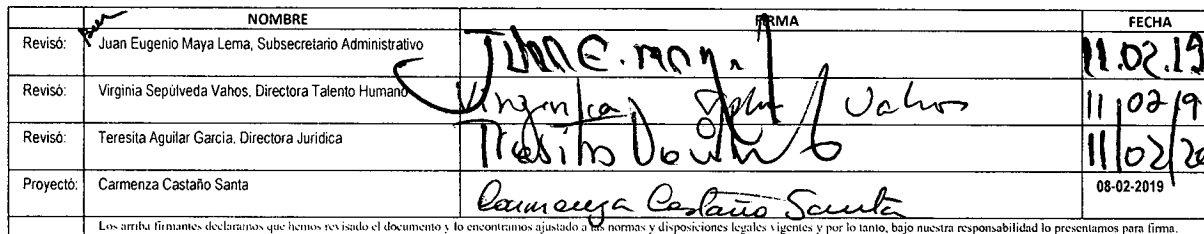 NOMBRE FIRMA FECHA
Revisó: Juan Eugenio Maya Lema, Subsecretario Administrativo Juan E. May. 11.02.19
Revisó: Virginia Sepúlveda Vahos, Directora Talento Humano Virginia Vahos 11/02/19
Revisó: Teresita Aguilar García, Directora Jurídica Teresita 11/02/20
Proyectó: Carmenza Castaño Santa Carmenza Castaño Santa 08-02-2019
Los arriba firmantes declaramos que hemos revisado el documento y lo encontramos ajustado a las normas y disposiciones legales vigentes y por lo tanto, bajo nuestra responsabilidad lo presentamos para firma.